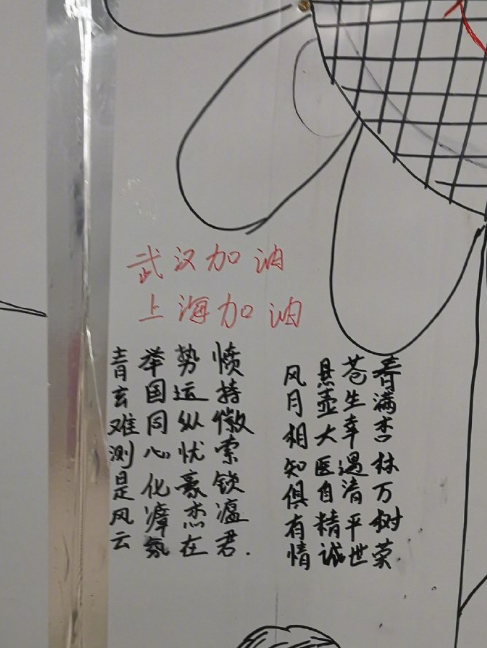 武汉加油
上海加油
青玄难测是风云
举国同心化瘴氛
势运纵忧豪杰在
愤持徽索锁瘟君.
风月相知俱有情
悬壶大医自精诚
苍生幸遇清平世
春满杏林万树荣